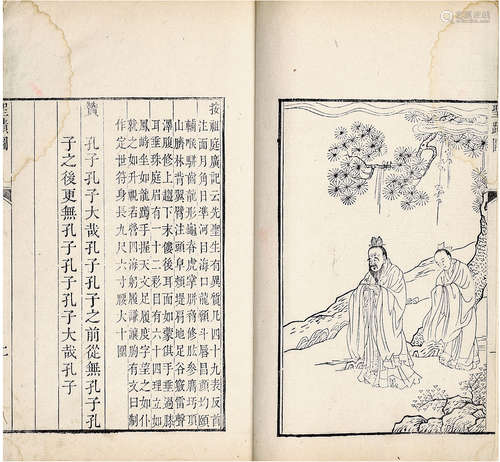 聖蹟圖
按祖庭廣記云先聖生有異質凡四十九表反首
洼面月角日準河目海口龍顙斗唇昌顏均頤
輔喉駢齒龍形龜脊虎掌胼脅修肱參膺圩頂
山臍林背翼臂注頭阜頰堤眉地足谷竅雷聲
澤腹修上趨下末僂後耳面如蒙倛手垂過膝
耳垂珠庭眉有一十二彩目有六十四理立如
鳳峙坐如龍蹲手握天文足履度字望之如仆
就之如升視若營四海躬履謙讓胸有文曰制
作定世符身長九尺六寸腰大十圍
贊
孔子孔子大哉孔子孔子之前從無孔子孔
子之後更無孔子孔子孔子大哉孔子
聖蹟圖